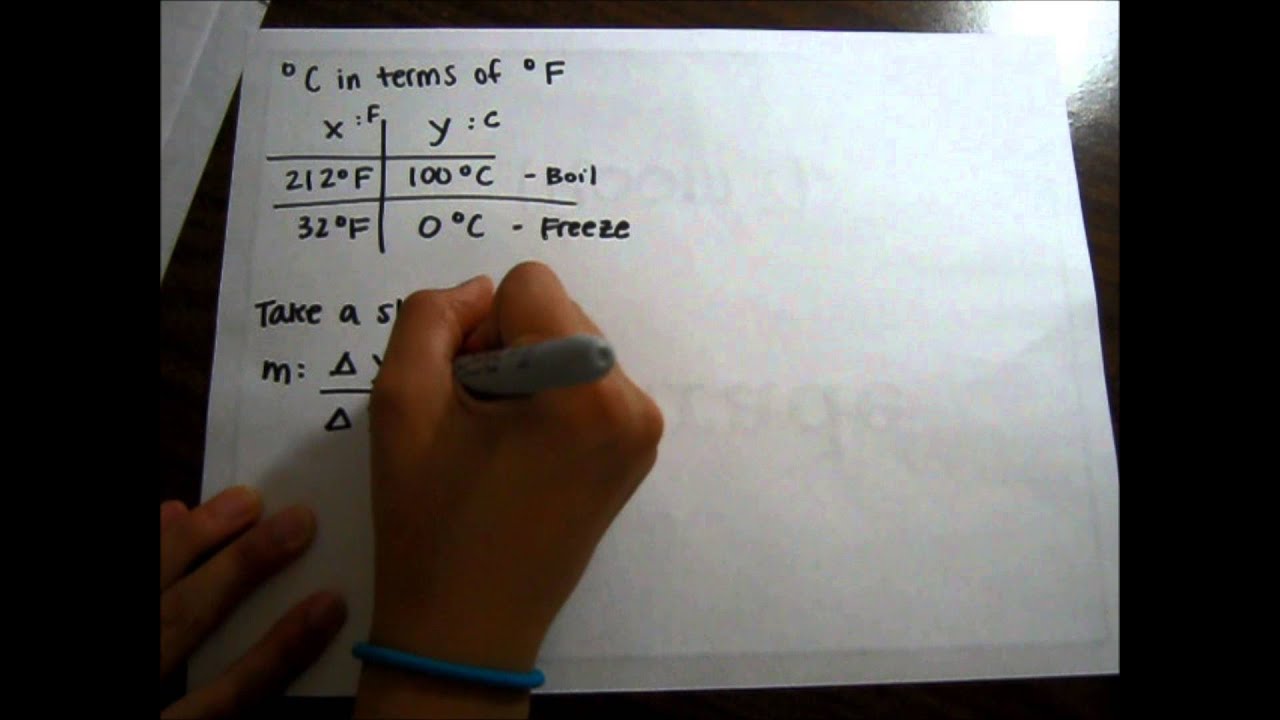 °C in terms of °F
x :F y : C
212°F 100°C - Boil
32°F 0°C - Freeze
Take a
m: Δ
Δ